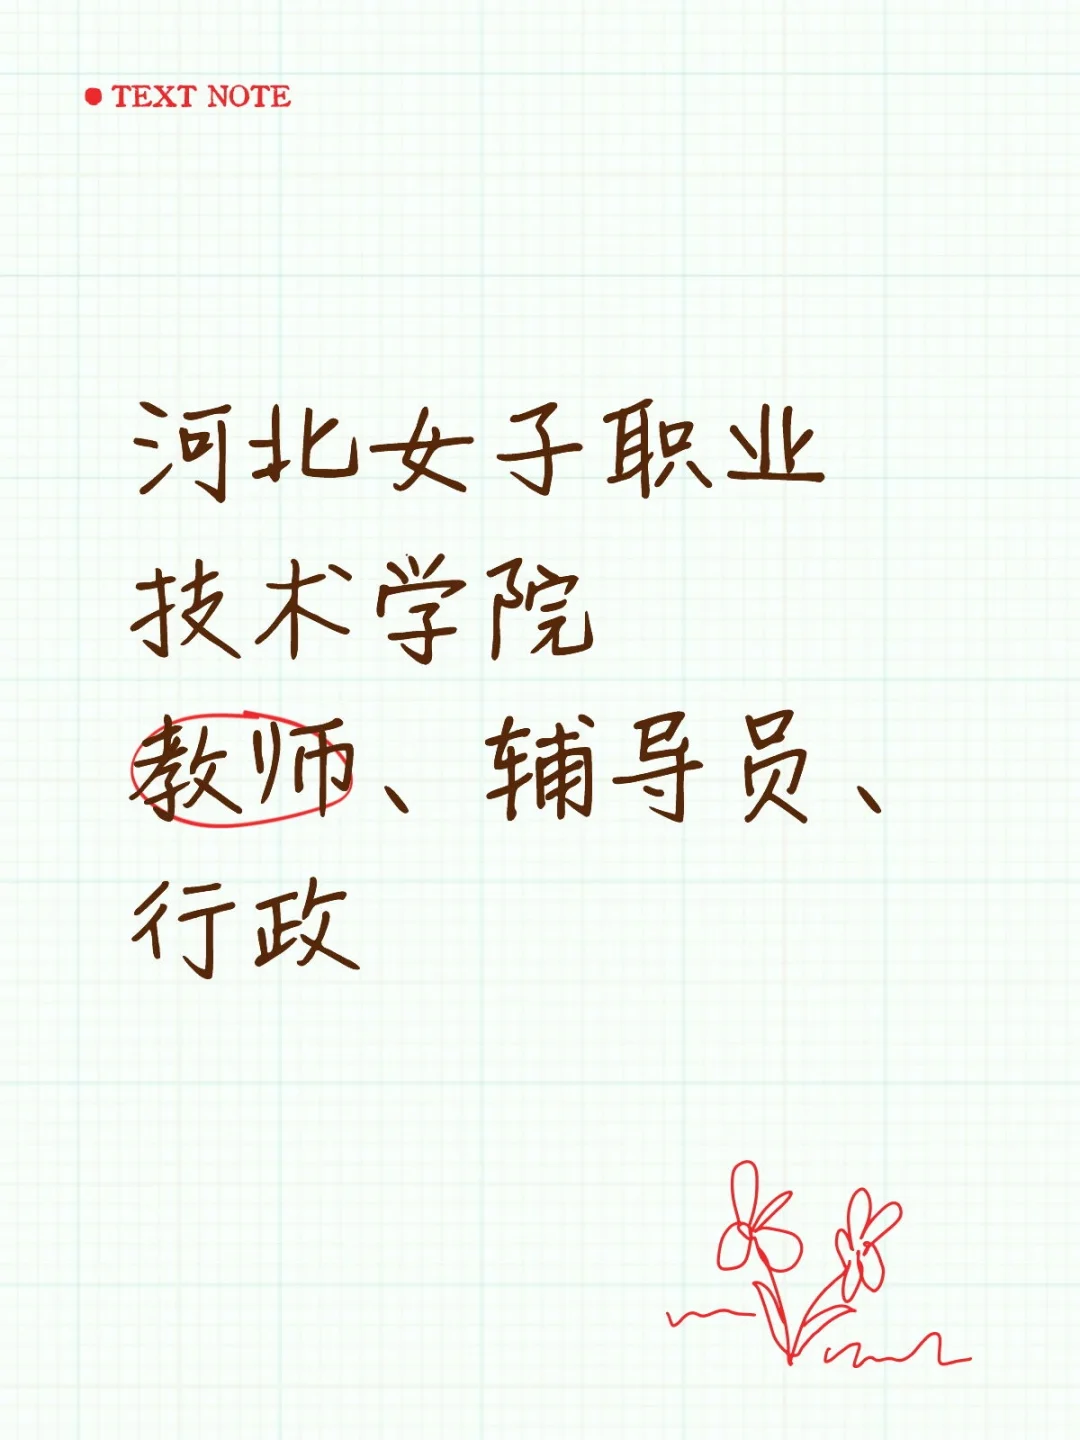 TEXT NOTE
河北女子职业
技术学院
教师、辅导员、
行政